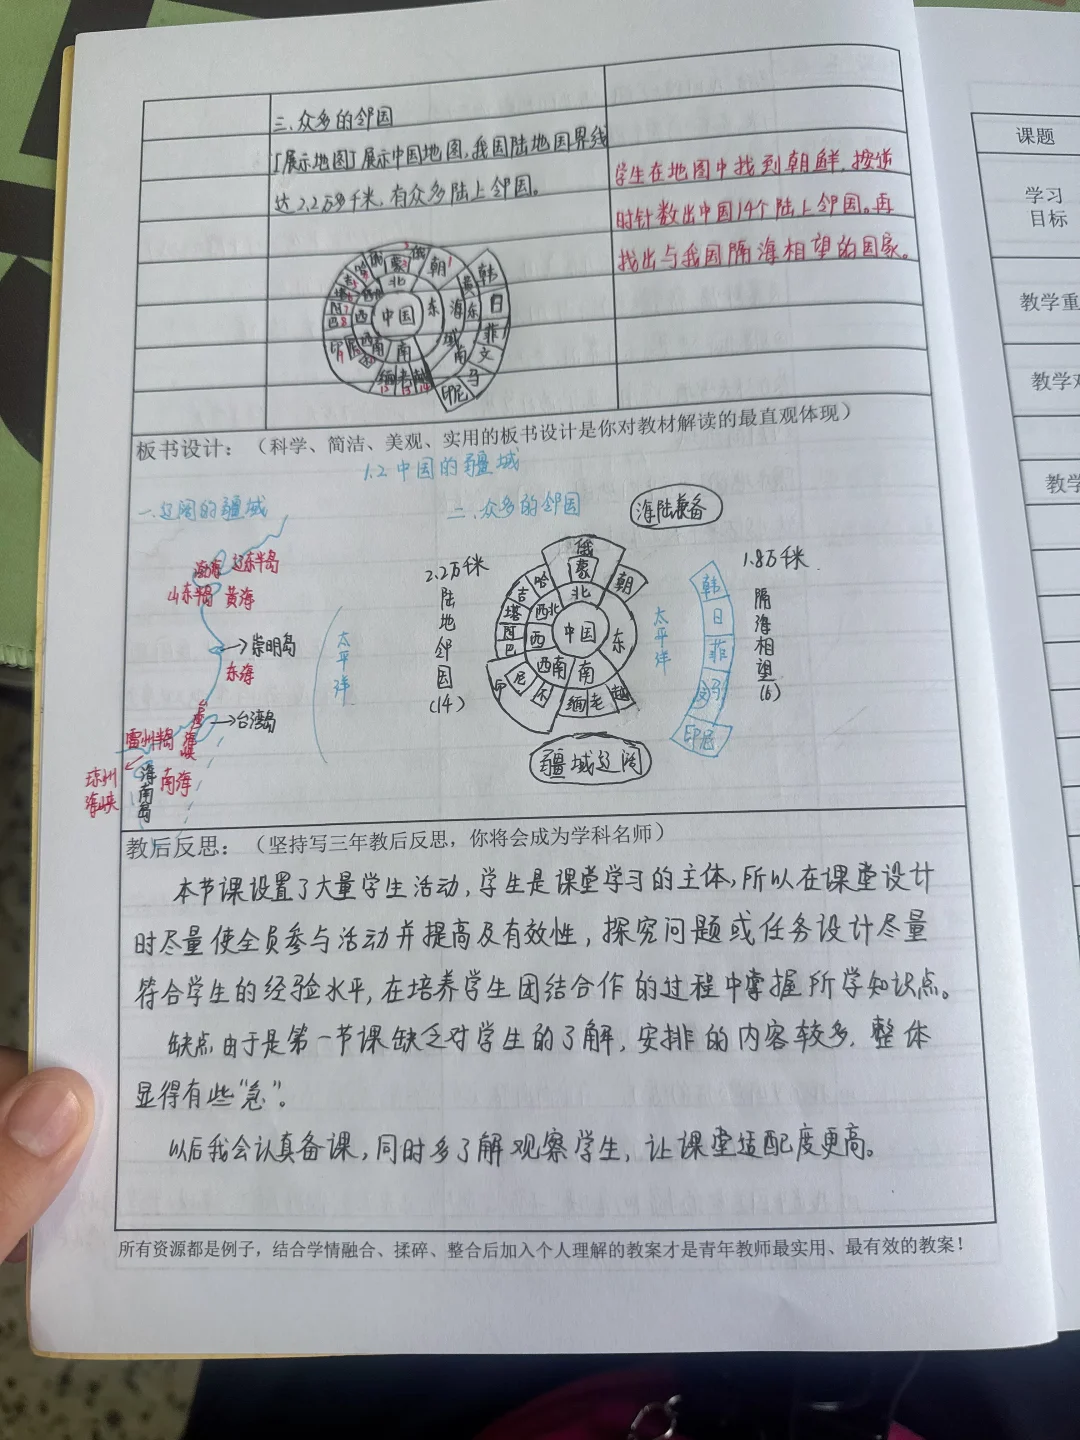 三、众多的邻国
[展示地图]展示中国地图,我国陆地国界线
达2.2万多千米,有众多陆上邻国。
学生在地图中找到朝鲜,按逆
时针数出中国14个陆上邻国。再
找出与我国隔海相望的国家。
俄
蒙
朝
北
中国
东
西
西南
南
缅
老
越
印
巴
阿
黄
海
东
域
南
韩
日
菲
文
马
印尼
板书设计:(科学、简洁、美观、实用的板书设计是你对教材解读的最直观体现)
1.2 中国的疆域
一.辽阔的疆域
二.众多的邻国
海陆兼备
渤海
辽东半岛
山东半岛
黄海
崇明岛
东海
台湾岛
雷州半岛
琼州
海峡
海南岛
南海
太平洋
2.2万千米
陆地邻国
(14)
俄
蒙
朝
哈
吉
塔
阿
巴
北
西北
西
中国
东
西南
南
印
尼
不
缅
老
越
疆域辽阔
太平洋
韩
日
菲
文
马
印尼
1.8万千米
隔海相望
(6)
教后反思:(坚持写三年教后反思,你将会成为学科名师)
本节课设置了大量学生活动,学生是课堂学习的主体,所以在课堂设计
时尽量使全员参与活动并提高及有效性,探究问题或任务设计尽量
符合学生的经验水平,在培养学生团结合作的过程中掌握所学知识点。
缺点,由于是第一节课缺乏对学生的了解,安排的内容较多,整体
显得有些“急”。
以后我会认真备课,同时多了解观察学生,让课堂适配度更高。
所有资源都是例子,结合学情融合、揉碎、整合后加入个人理解的教案才是青年教师最实用、最有效的教案!
课题
学习
目标
教学重
教学难
教学